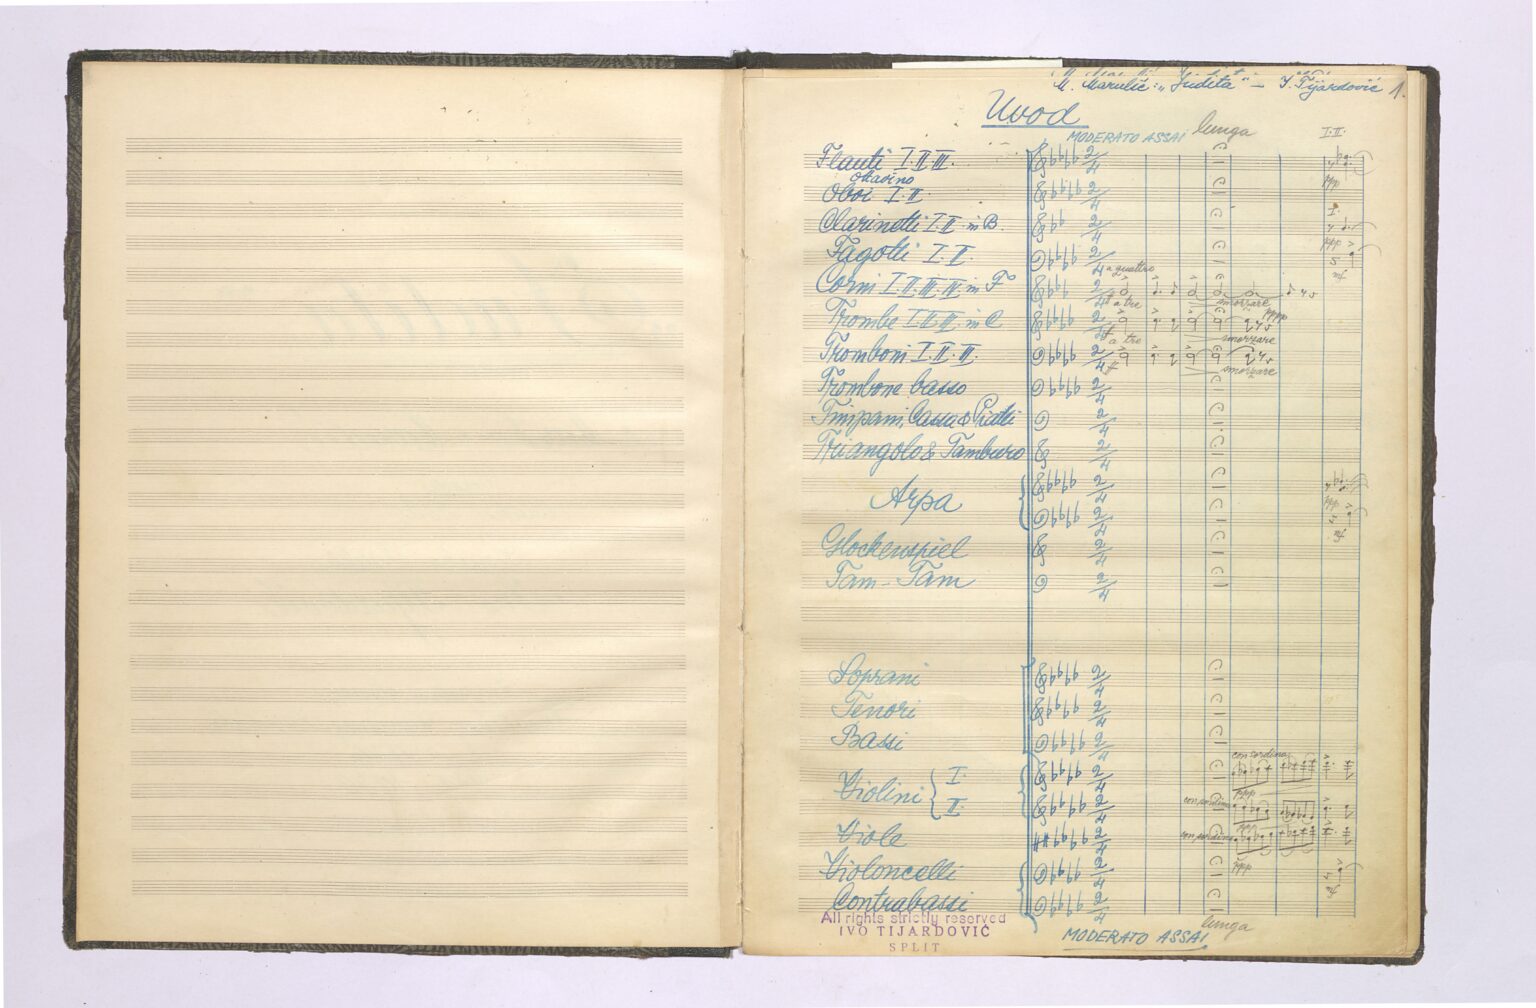 M. Marulić: „Judita" – I. Tijardović 1.
Uvod
MODERATO ASSAI lunga
I. II.
Flauti I. II. III.
Ottavino
ppp
Oboi I. II.
I.
Clarinetti I. II. in B.
ppp
Fagotti I. II.
mf
a quattro
Corni I. II. III. IV. in F
smorzare
a tre
pppp
Trombe I. II. III. in C
smorzare
a tre
Tromboni I. II. III.
smorzare
Trombone basso
Timpani, Cassa & Piatti
Triangolo & Tamburo
Arpa
ppp
mf
Glockenspiel
Tam-Tam
Soprani
Tenori
Bassi
con sordina
Violini I.
ppp
II.
con sordina
Viole
con sordina
ppp
Violoncelli
mf
Contrabassi
All rights strictly reserved
IVO TIJARDOVIĆ
SPLIT
lunga
MODERATO ASSAI